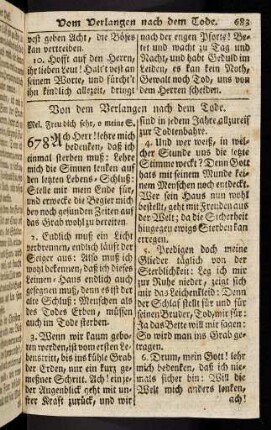 Vom Verlangen nach dem Tode. 683
vest geben Acht, die Böses
kan vertreiben.
10. Hofft auf den Herrn,
ihr lieben Leut! Halt't vest an
seinem Worte, und fürcht't
ihn kindlich allezeit, dringt
nach der engen Pforte! Be-
tet und wacht zu Tag und
Nacht, und habt Geduld im
Leiden, es kan kein Noth,
Gewalt noch Tod, uns von
dem Herren scheiden.
Von dem Verlangen nach dem Tode.
Mel. Freu dich sehr, o meine S.
678 Ach Herr! lehre mich
bedenken, daß ich
einmal sterben muß: Lehre
mich die Sinnen lenken auf
den letzten Lebens-Schluß:
Stelle mir mein Ende für,
und erwecke die Begier mich
bey noch gesunden Zeiten auf
das Grab wohl zu bereiten.
2. Endlich muß ein Licht
verbrennen, endlich läuft der
Seiger aus: Also muß ich
wohl bekennen, daß ich dieses
Leimen-Haus endlich auch
gesegnen muß: Denn es ist der
alte Schluß: Menschen als
des Todes Erben, müssen
auch im Tode sterben.
3. Wenn wir kaum gebo-
ren werden, ist vom ersten Le-
benstritt, bis ins kühle Grab
der Erden, nur ein kurz ge-
meßner Schritt. Ach! ein je-
der Augenblick geht mit un-
ser Kraft zurück, und wir
sind in jedem Jahre allzureif
zur Todtenbahre.
4. Und wer weiß, in wel-
cher Stunde uns die letzte
Stimme weckt? Denn Gott
hats mit seinem Munde kei-
nem Menschen noch entdeckt.
Wer sein Haus nun wohl
bestellt, geht mit Freuden aus
der Welt; da die Sicherheit
hingegen ewigs Sterben kan
erregen.
5. Predigen doch meine
Glieder täglich von der
Sterblichkeit: Leg ich mir
zur Ruhe nieder, zeigt sich
mir das Leichenkleid: Denn
der Schlaf stellt für und für
seinen Bruder, Tod, mir für:
Ja das Bette will mir sagen:
So wird man ins Grab ge-
tragen.
6. Drum, mein Gott! lehr
mich bedenken, daß ich nie-
mals sicher bin: Will die
Welt mich anders lenken,
ach!